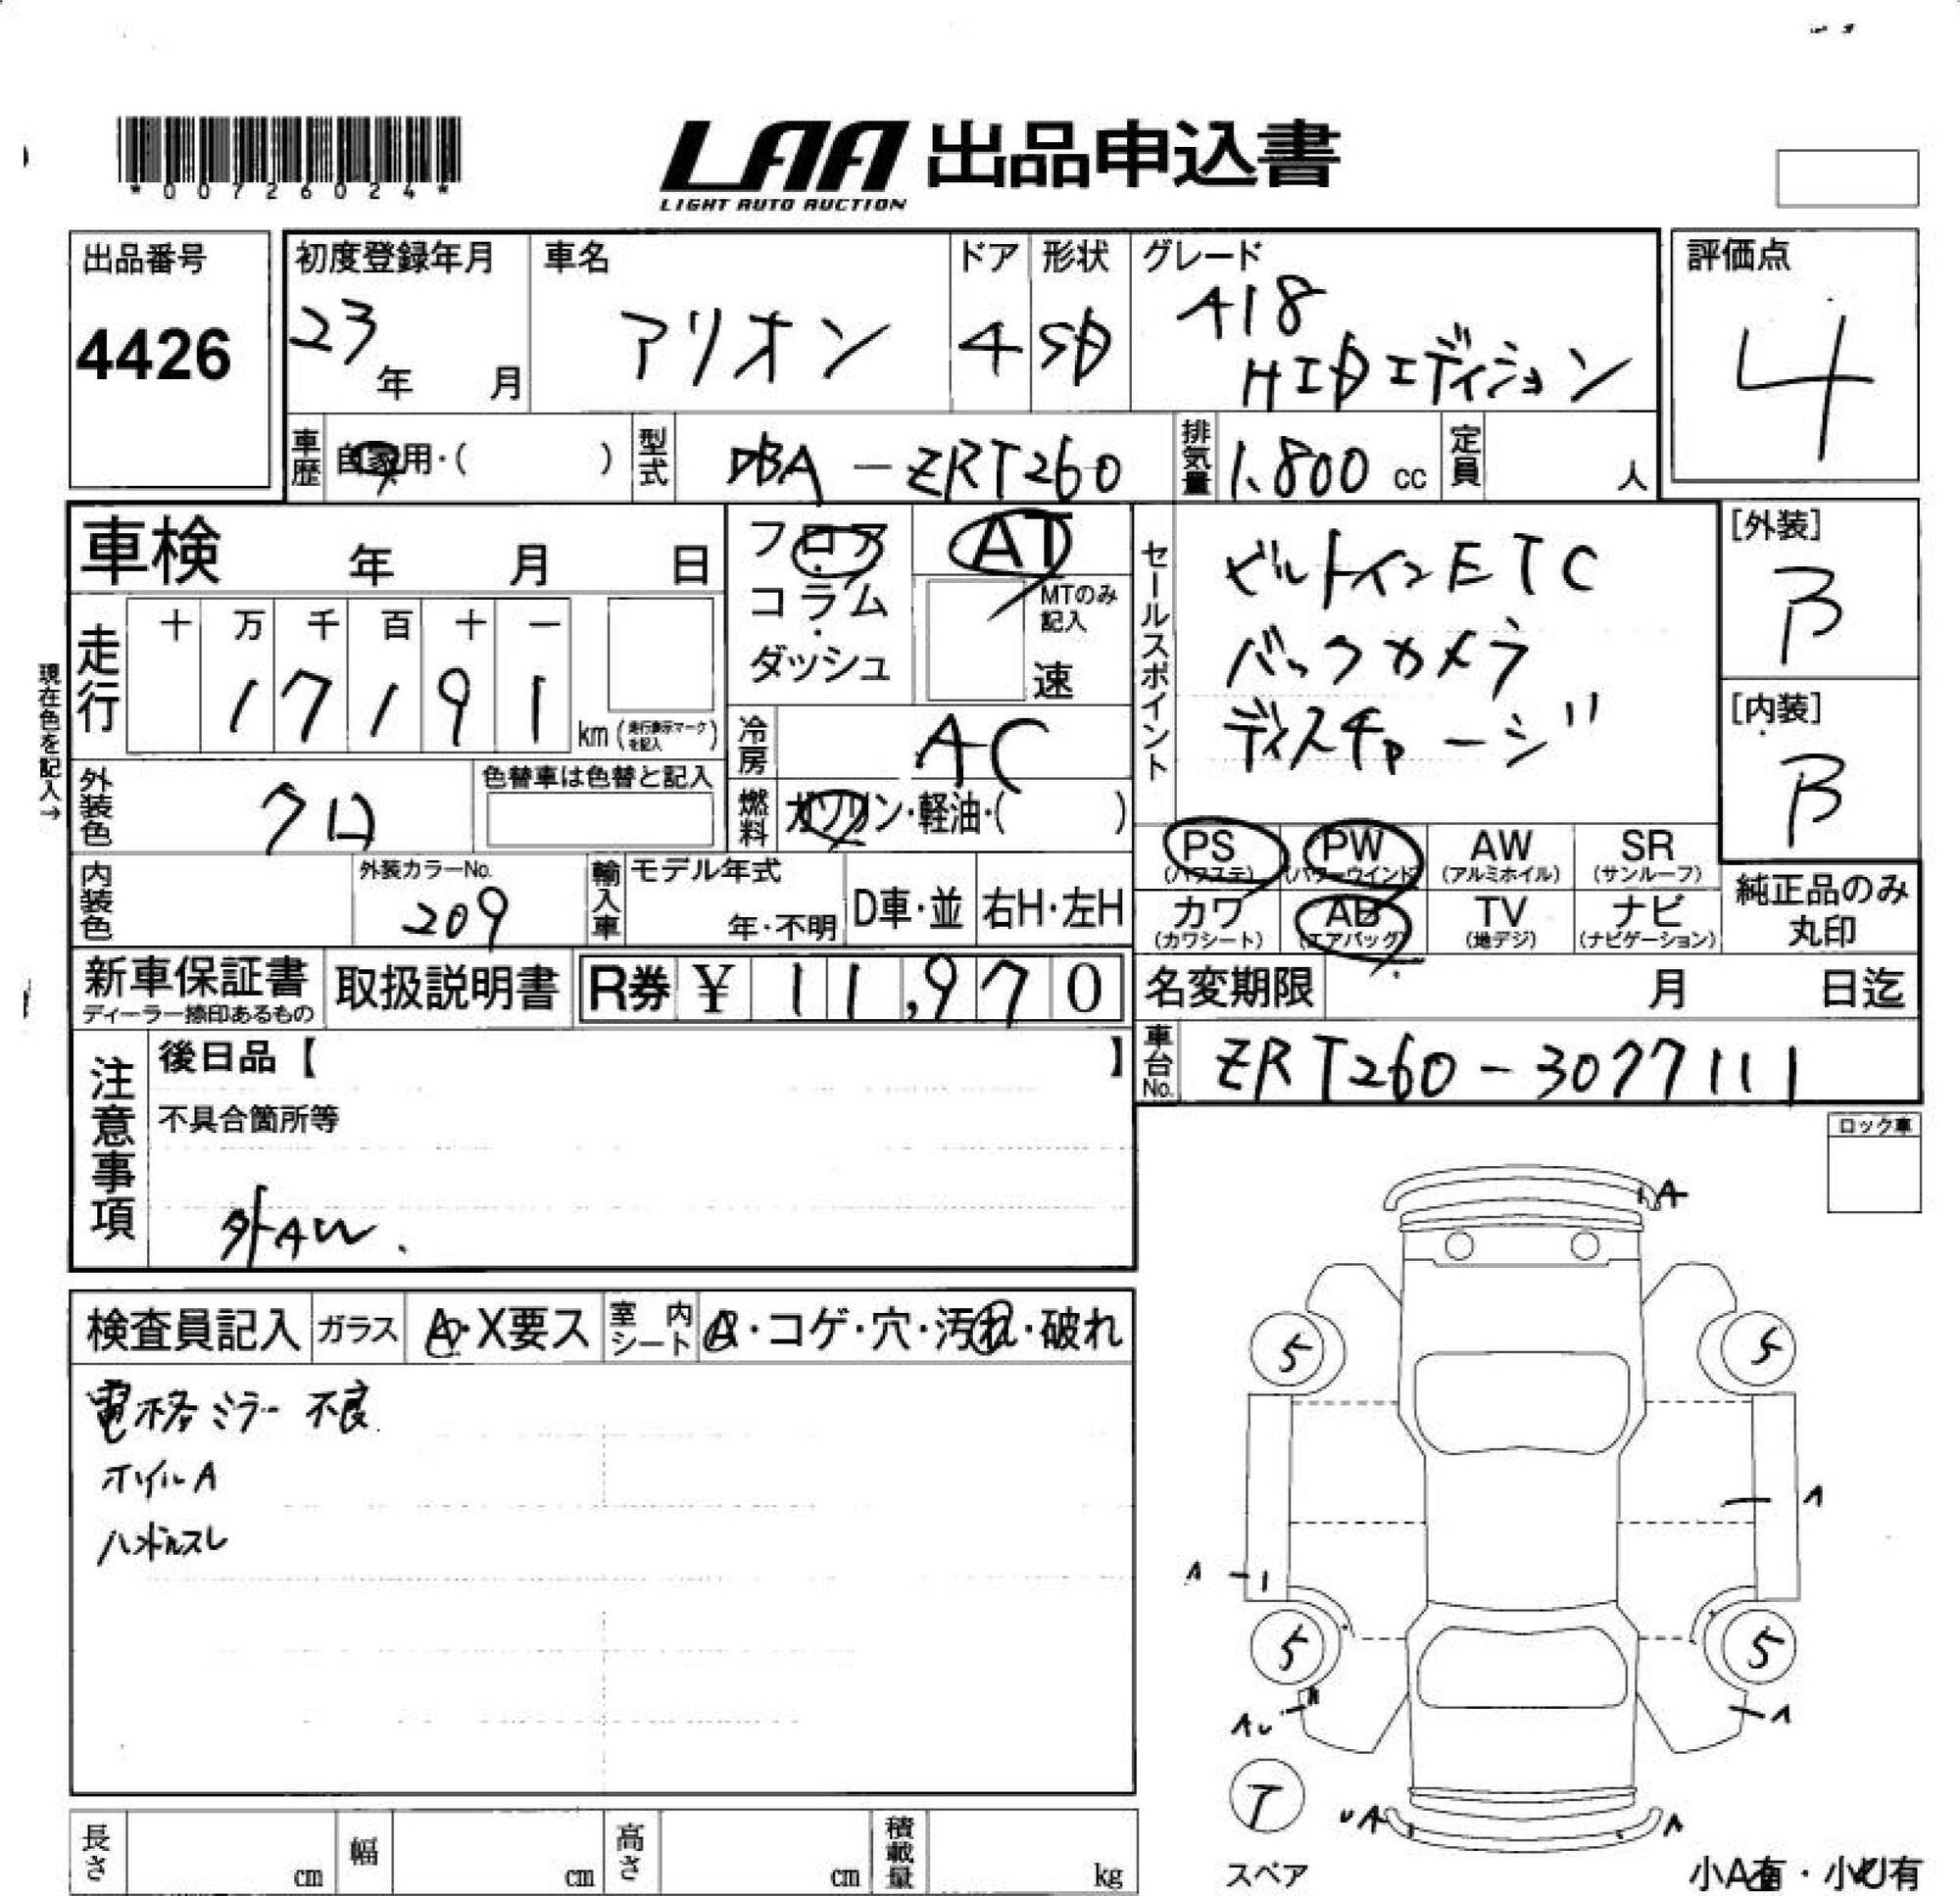 *00726024*
LAA 出品申込書
LIGHT AUTO AUCTION
出品番号
4426
初度登録年月
23年 月
車名
アリオン
ドア
4
形状
SD
グレード
A18
HIDエディション
評価点
4
車歴
自家用・( )
型式
DBA-ZRT260
排気量
1.800 cc
定員
人
車検 年 月 日
フロア
コラム
ダッシュ
AT
MTのみ記入
速
セールスポイント
ビルトインETC
バックカメラ
ディスチャージ
[外装]
B
[内装]
B
現在色を記入→
走行
十 万 千 百 十 一
17191
km(走行表示マークを記入)
冷房
AC
外装色
クロ
色替車は色替と記入
燃料
ガソリン・軽油・( )
PS
(パワステ)
PW
(パワーウインド)
AW
(アルミホイル)
SR
(サンルーフ)
カワ
(カワシート)
AB
(エアバッグ)
TV
(地デジ)
ナビ
(ナビゲーション)
純正品のみ
丸印
内装色
外装カラーNo.
209
輸入車
モデル年式
年・不明
D車・並
右H・左H
新車保証書
ディーラー捺印あるもの
取扱説明書
R券 ¥ 11,970
名変期限 月 日迄
車台No.
ZRT260-3077111
注意事項
後日品【 】
不具合箇所等
外AW.
ロック車
検査員記入
ガラス
A・X要ス
室内シート
A・コゲ・穴・汚れ・破れ
電格ミラー不良
ホイルA
ハンドルスレ
A
5
5
A
A
5
5
AU
A
T
スペア
UA
A
小A有・小U有
長さ cm
幅 cm
高さ cm
積載量 kg